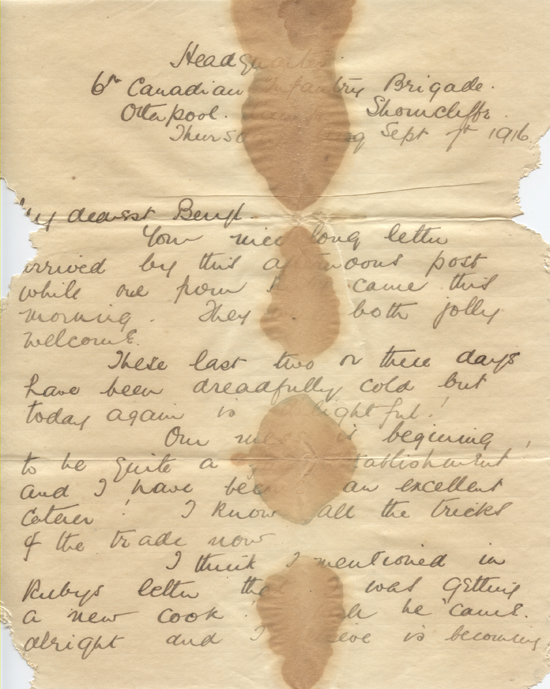 Headquarters.
6th Canadian Infantry Brigade.
Otterpool. Shorncliffe.
Sept 7th 1916.
My dearest Beryl.
Your nice long letter
arrived by this afternoons post
while one from came this
morning. They both jolly
welcome.
These last two or three days
have been dreadfully cold but
today again is delightful!
Our mess is begining
to be quite a establishment
and I have been an excellent
caterer! I know all the tricks
of the trade now
I think I mentioned in
Rubys letter that was getting
a new cook he came
alright and I is becoming